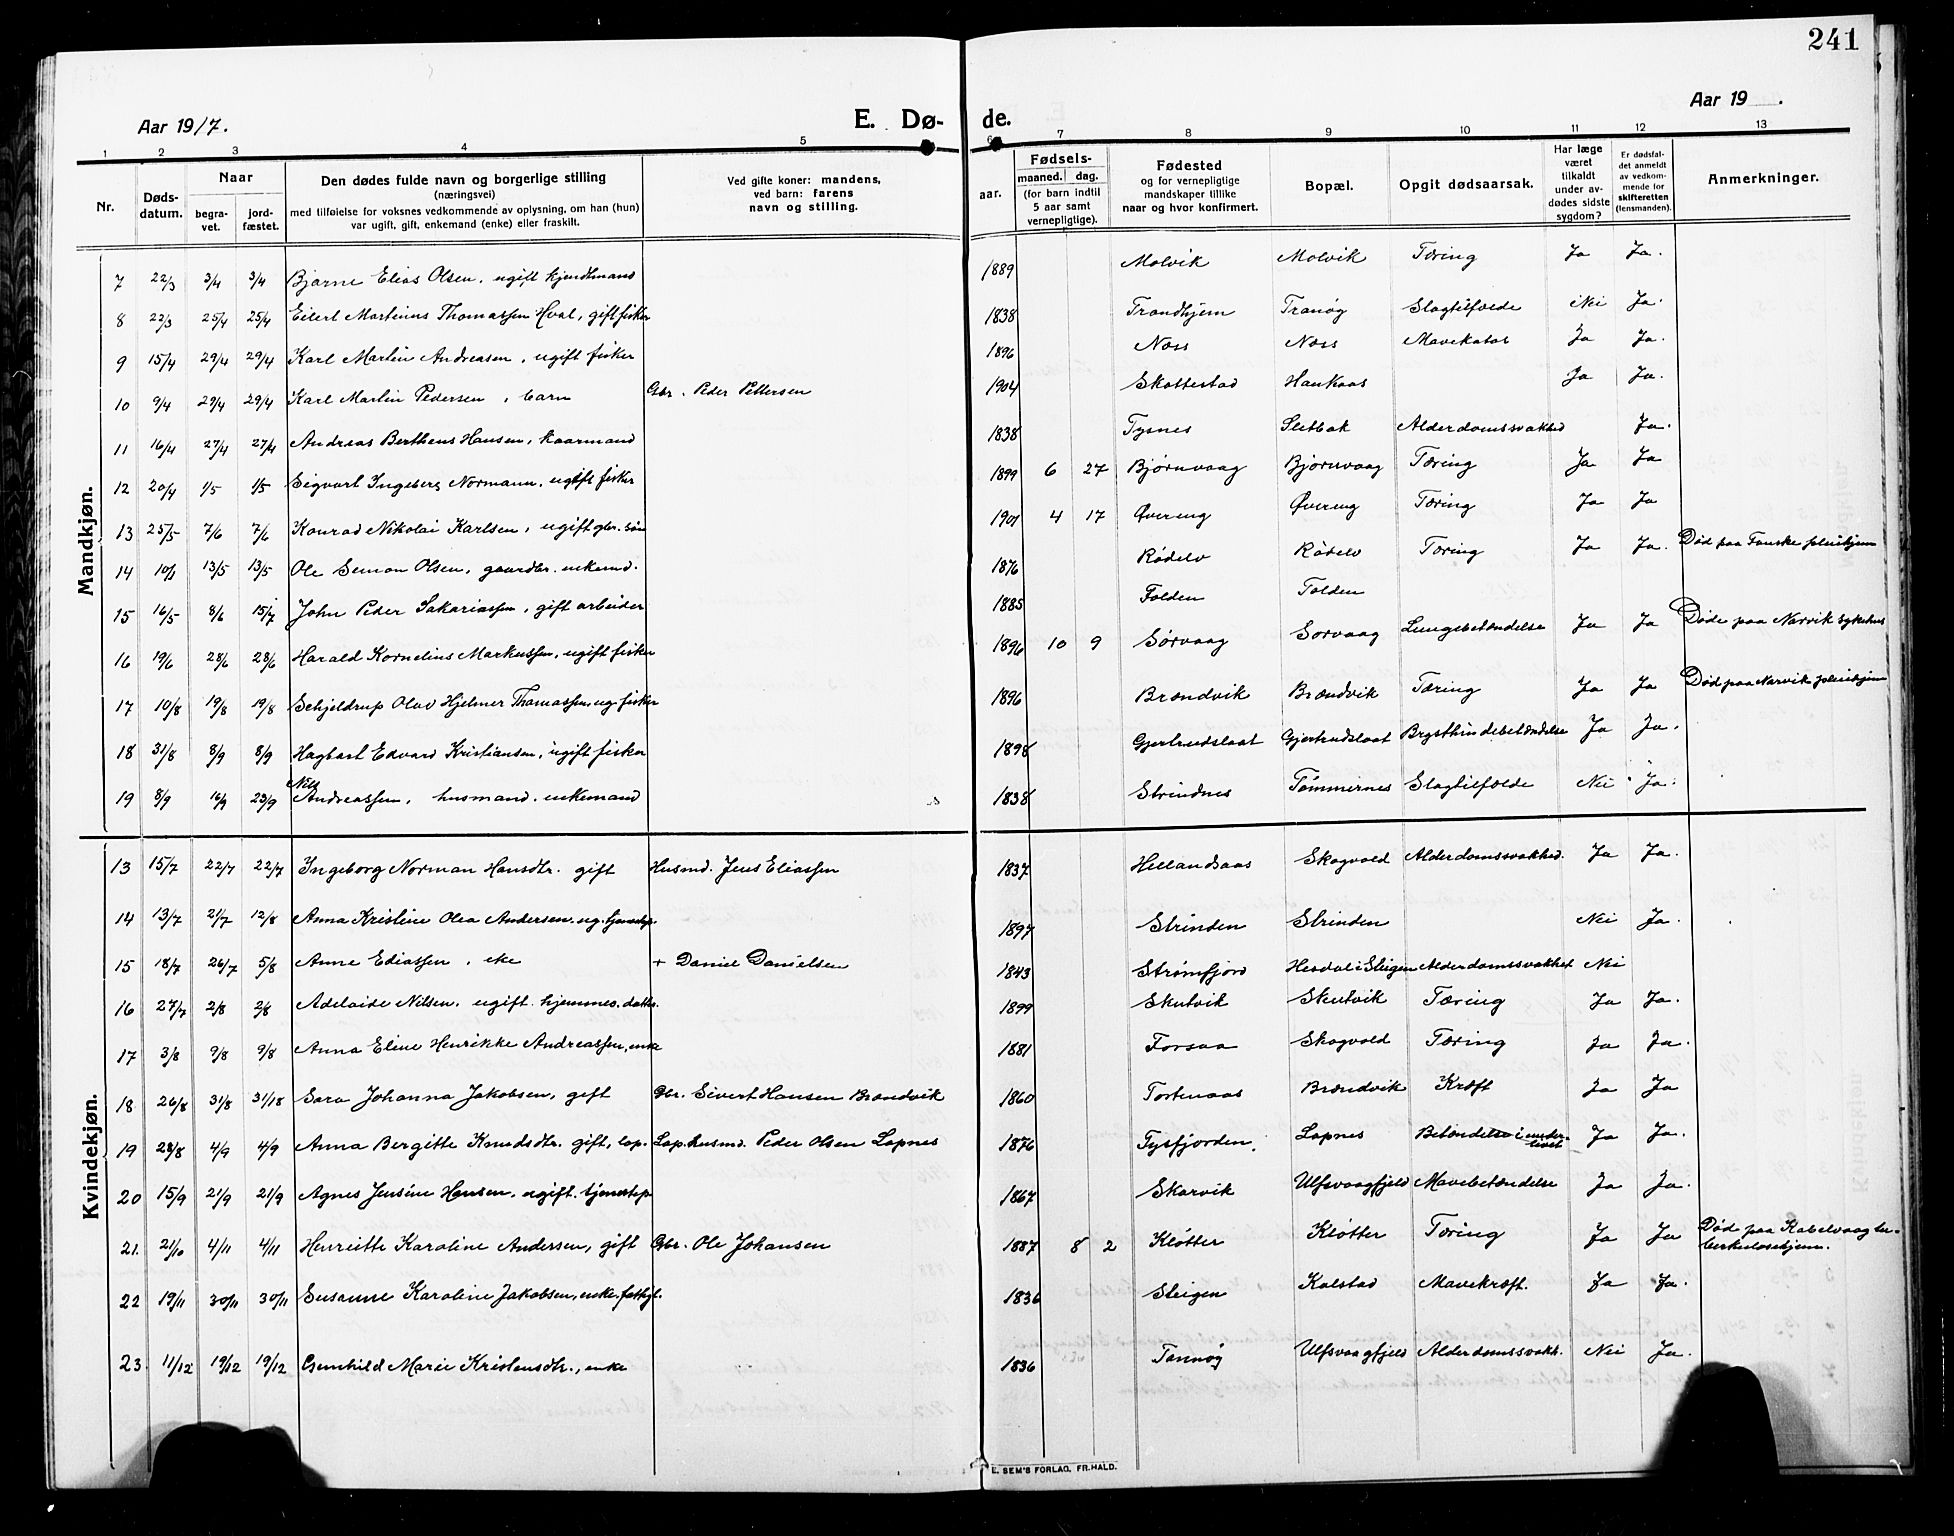 241
Aar 1917. E. Dø- de. Aar 19 .
1 2 3 4 5 6 7 8 9 10 11 12 13
Nr. Døds-datum. Naar begra-vet. jord-fæstet. Den dødes fulde navn og borgerlige stilling (næringsvei) med tilføielse for voksnes vedkommende av oplysning, om han (hun) var ugift, gift, enkemand (enke) eller fraskilt. Ved gifte koner: mandens, ved barn: farens navn og stilling. aar. Fødsels- maaned. dag. (for barn indtil 5 aar samt vernepligtige). Fødested og for vernepligtige mandskaper tillike naar og hvor konfirmert. Bopæl. Opgit dødsaarsak. Har læge været tilkaldt under av-dødes sidste sygdom? Er dødsfal-det anmeldt av vedkom-mende for skifteretten (lensmanden). Anmerkninger.
Mandkjøn.
7 22/3 3/4 3/4 Bjarne Elias Olsen, ugift 1889 Molvik Molvik Tæring Ja Ja.
8 22/3 25/4 25/4 Eilert Martinus Thomassen Hval, gift fisker 1838 Trondhjem Tranøy Slagtilfælde Nei Ja.
9 15/4 29/4 29/4 Karl Martin Andreasen, ugift fisker 1896 Næss Næss Mavekatar Ja Ja.
10 9/4 29/4 29/4 Karl Martin Pedersen, barn Gbr. Peder Pettersen 1904 Skottestad Haukaas Ja Ja.
11 16/4 27/4 27/4 Andreas Bertheus Hansen, kaarmand 1838 Tysnes Sletbak Alderdomssvakhed Ja.
12 20/4 1/5 1/5 Sigvart Ingeberg Normann, ugift fisker 1899 6 27 Bjørnvaag Bjørnvaag Tæring Ja Ja
13 25/5 7/6 7/6 Konrad Nikolai Karlsen, ugift gbr. søn 1901 4 17 Øvereng Øvereng Tæring Ja Ja
14 13/5 13/5 Ole Simon Olsen, gaardbr. enkemd. 1876 Rødelv Rødelv Tæring Ja Ja. Død paa Fauske pleiehjem
15 16/5 8/6 15/7 John Peder Sakariassen, gift arbeider 1885 Folden Folden
16 19/6 28/6 28/6 Harald Kornelius Markussen, ugift fisker 1896 10 9 Sørvaag Sørvaag Lungebetændelse Ja Ja Døde paa Narvik sykehus
17 10/8 19/8 19/8 Schjeldrup Olav Hjelmer Thomassen, ug. fisker 1896 Brændvik Brændvik Tæring Ja Ja Død paa Narvik pleiehjem
18 31/8 8/9 8/9 Hagbart Edvard Kristiansen, ugift fisker 1898 Gjertrudslaat Gjertrudslaat Brysthindebetændelse Ja Ja.
19 8/9 16/9 23/9 Nils Andreassen, husmand, enkemand 1838 Strindnes Tømmernes Slagtilfælde Nei Ja.
Kvindekjøn.
13 15/7 22/7 22/7 Ingeborg Norman Hansdtr. gift Husmd. Jens Eliassen 1837 Hellandsaas Skogvold Alderdomssvakhed. Ja Ja.
14 13/7 21/7 12/8 Anna Kristine Olea Andersen, ug. tjenestep. 1897 Strinden Strinden Nei Ja.
15 18/7 26/7 5/8 Anne Ediassen, eke + Daniel Danielsen 1843 Strømfjord Hesdal i Steigen Alderdomssvakhet Nei
16 27/7 2/8 2/8 Adelaide Nilsen, ugift hjemmev. datter. 1899 Skutvik Skutvik Tæring Ja Ja.
17 3/8 9/8 9/8 Anna Eline Henrikke Andreassen, enke 1881 Forsaa Skogvold Tæring Ja Ja.
18 26/8 31/8 31/8 Sara Johanna Jakobsen, gift Gbr. Sivert Hansen Brændvik 1860 Tortenaas Brændvik Kræft Ja Ja
19 28/8 4/9 4/9 Anna Bergitte Knudsdtr. gift, lap. Lap. husmd. Peder Olsen Lapnes 1876 Tysfjorden. Lapnes Betændelse i underlivet Ja Ja.
20 15/9 21/9 21/9 Agnes Jensine Hansen, ugift tjenestep. 1867 Skarvik Ulfsvaagfjeld Mavebetændelse Ja Ja.
21. 21/10 4/11 4/11 Henreitte Karoline Andersen, gift Gbr. Ole Johansen 1887 8 2 Kløtter Kløtter Tæring Ja Ja Død paa Kabelvaag tuberkulosehjem.
22 19/11 30/11 30/11 Susanne Karoline Jakobsen, enke, fattigl. 1836 Steigen Kalstad Mavekræft. Ja Ja.
23 11/12 19/12 19/12 Gunhild Marie Kristensdtr., enke 1836 Tannøy Ulfsvaagfjeld Alderdomssvakh. Nei Ja.
E. SEM'S FORLAG, FR.HALD.